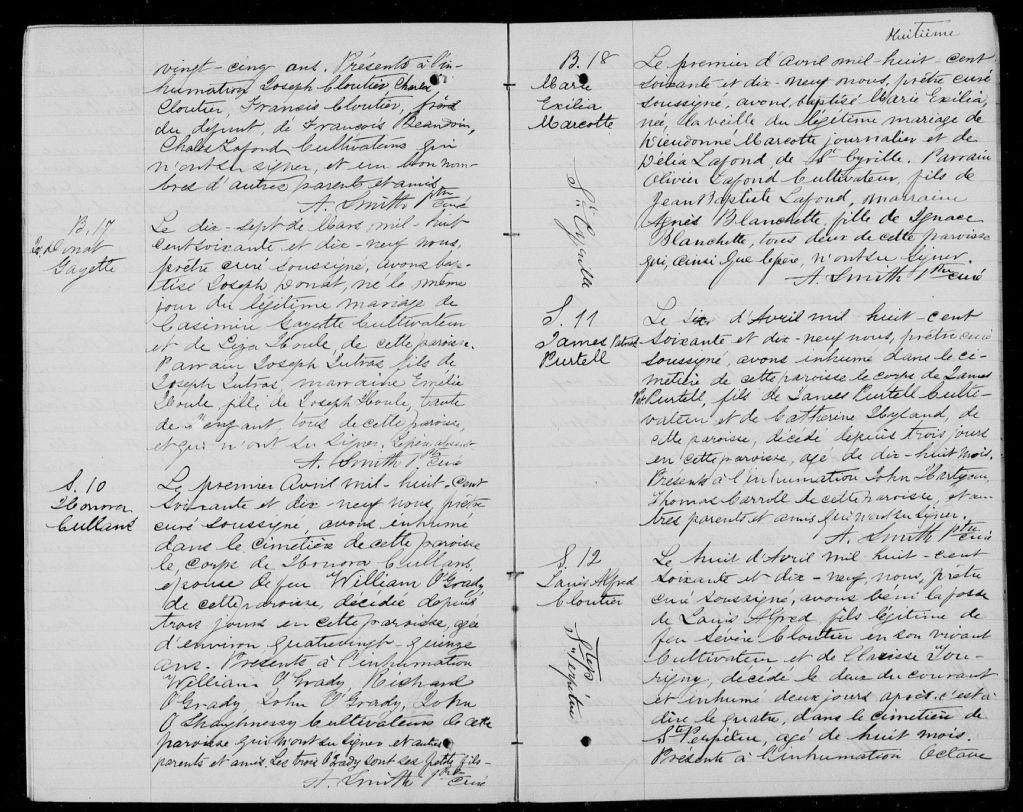 vingt-cinq ans. Présents à l'in-
humation Joseph Cloutier, Charles
Cloutier, Francis Cloutier, frères
du défunt, de François Beaudoin,
Charles Lafond Cultivateurs qui
n'ont su signer, et un bon nom-
bre d'autres parents et amis
A. Smith Ptre curé
B. 17
Jos. Donat
Gayette
Le dix-sept de Mars mil-huit
cent soixante et dix-neuf nous,
prêtre curé soussigné, avons bap-
tisé Joseph Donat, né le même
jour du légitime mariage de
Casimir Gayette Cultivateur
et de Liza Houle, de cette paroisse.
Parrain Joseph Dubras, fils de
Joseph Dubras, marraine Emélie
Houle fille de Joseph Houle, tante
de l'enfant, tous de cette paroisse,
et qui n'ont su signer. Le père absent
A. Smith Ptre curé
S. 10
Honora
Cullans
Le premier Avril mil-huit-cent
soixante et dix-neuf nous, prêtre
curé soussigné, avons inhumé
dans le cimetière de cette paroisse
le corps de Honora Cullans,
épouse de feu William O'Grady,
de cette paroisse, décédée depuis
trois jours en cette paroisse, agée
d'environ quatrevingt-quinze
ans. Présents à l'inhumation
William O'Grady, Richard
O'Grady, John O'Grady, John
O'Shaghnessy Cultivateurs de cette
paroisse qui n'ont su signer et autres
parents et amis. Les trois O'Grady sont ses petits fils-
A. Smith Ptre curé
Huitième
B. 18
Marie
Exilia
Marcotte
St Cyrille
Le premier d'Avril mil-huit-cent-
soixante et dix-neuf nous, prêtre curé
soussigné, avons baptisé Marie Exilia,
née, la veille du légitime mariage de
Dieudonné Marcotte journalier et de
Délia Lafond de St Cyrille. Parrain
Olivier Lafond Cultivateur, fils de
Jean Baptiste Lafond, marraine
Agnès Blanchette, fille de Ignace
Blanchette, tous deux de cette paroisse
qui, ainsi que le père, n'ont su signer.
A. Smith Ptre curé
S. 11
James Patrick
Purtell
Le six d'Avril mil huit-cent
soixante et dix-neuf nous, prêtre curé
soussigné, avons inhumé dans le ci-
metière de cette paroisse le corps de James
Pat. Purtell, fils de James Purtell Culti-
vateur et de Catherine Hyland, de
cette paroisse, décédé depuis trois jours
en cette paroisse, agé de dix-huit mois.
Présents à l'inhumation John Hartigan,
Thomas Carroll de cette paroisse, et au-
tres parents et amis qui n'ont su signer.
A. Smith Ptre curé
S. 12
Louis Alfred
Cloutier
Ste Perpétue
Le huit d'Avril mil huit-cent
soixante et dix-neuf, nous, prêtre
curé soussigné, avons béni la fosse
de Louis Alfred, fils légitime de
feu Sévère Cloutier en son vivant
Cultivateur et de Clarisse Tou-
rigny, décédé le deux du courant
et inhumé deux jours après c'est à
dire le quatre, dans le cimetière de
Ste Perpétue, agé de huit mois.
Présents à l'inhumation Octave